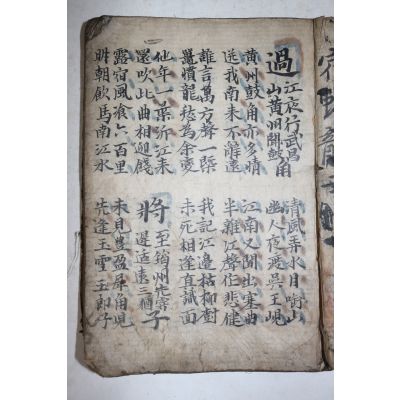 過江夜行武昌
山黃州聞鼓角
清風弄水月啣山
幽人夜渡吳王峴
黃州鼓角亦多情
江南又聞出塞曲
送我南來不辭遠
半雜江聲作悲健
誰言萬方聲一槩
我記江邊枯柳樹
鼉憤龍愁為余變
未死相逢真識面
他年一葉泝江來
還吹此曲相迎餞
將至筠州先寄
遲适遠三猶子
露宿風飡六百里
未見豊盈犀角兒
明朝飲馬南江水
先逢玉雪王郎子